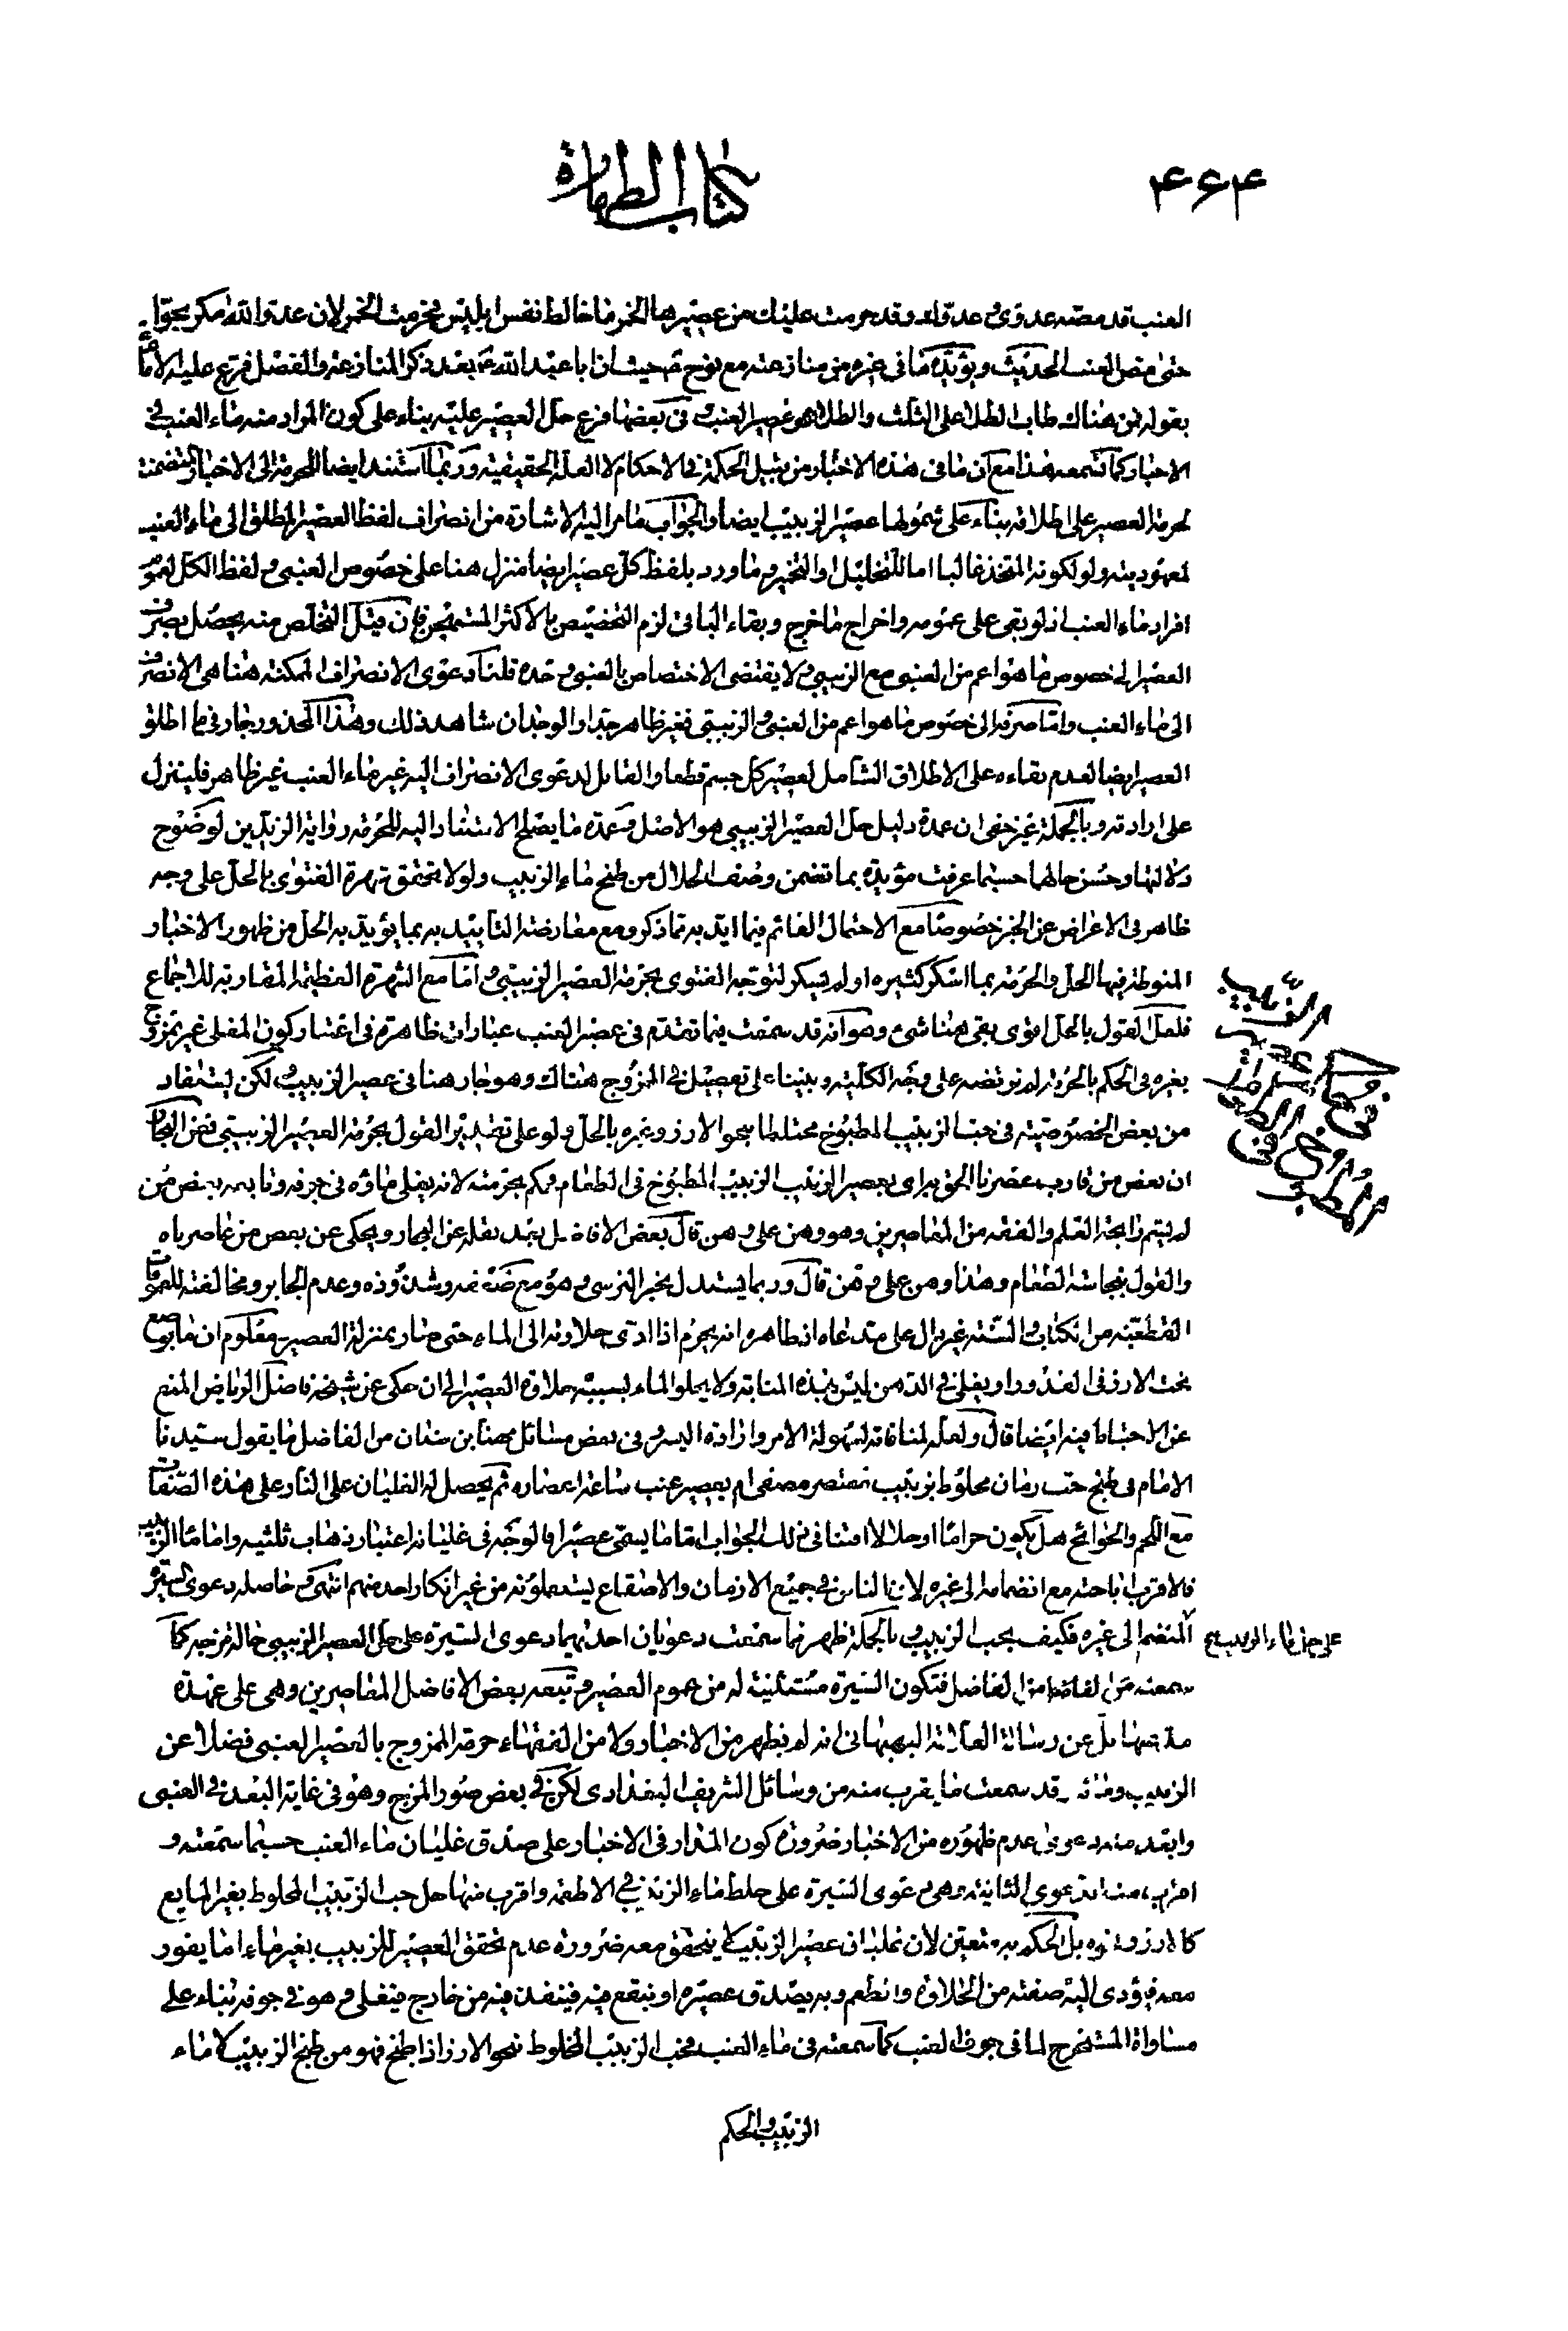 ۴۶۴
كتاب الطهارة
العنب قد مصه عدوي وعدوك وقد حرمت عليك من عصيرها الخمر ما خالط نفس ابليس فحرمت الخمر لان عدو الله مكر بحوا
حتى مص العنب الحديث ويؤيده ما في غيره من منازعته مع نوح حيث ان ابا عبد الله ع بعد ذكر المنازعة والفصل فرع عليه الامام ع
بقوله فمن هناك طاب الطلا على الثلث والطلا هو عصير العنب و في بعضها فرع حل العصير عليه بناء على كون المراد منه ماء العنب في
الاخبار كما تسمعه هذا مع ان ما في هذه الاخبار من قبيل الحكمة في الاحكام لا العلة الحقيقية وربما استند ايضا للحرمة الى الاخبار المتضمنة
لحرمة العصير على اطلاقه بناء على شمولها عصير الزبيب ايضا والجواب ما مر اليه الاشارة من انصراف لفظ العصير المطلق الى ماء العنب
لمعهوديته ولو لكونه المتخذ غالبا اما للتخليل او التخمير وما ورد بلفظ كل عصير ايضا منزل هنا على خصوص العنبي و لفظ الكل لعموم
افراد ماء العنب اذ لو بقى على عمومه واخراج ما خرج وبقاء الباقي لزم التخصيص بالاكثر المستهجن فان قيل التخلص منه يحصل بصرف
العصير الى خصوص ما هو اعم من العنبي مع الزبيبي و لا يقتضى الاختصاص بالعنبي وحده قلنا دعوى الانصراف الممكنة هنا هى الانصراف
الى ماء العنب واما صرفه الى خصوص ما هو اعم من العنبي و الزبيبي فغير ظاهر جدا والوجدان شاهد ذلك وهذا المحذور جار في ما اطلق
العصير ايضا لعدم بقاءه على الاطلاق الشامل لعصير كل جسم قطعا والقابل لدعوى الانصراف اليه غير ماء العنب غير ظاهر فلينزل
على ارادته وبالجملة غير خفي ان عمدة دليل حل العصير الزبيبي هو الاصل وعمدة ما يصلح الاستناد اليه للحرمة رواية الزيدين لوضوح
دلالتها وحسن حالها حسبما عرفت مؤيدة بما تضمن وصف الحلال من طبخ ماء الزبيب ولولا تحقق شهرة الفتوى بالحل على وجه
ظاهر في الاعراض عن الخبر خصوصا مع الاحتمال القائم فيما ايد به مما ذكر ومع معارضة التاييد به بما يؤيد به الحل من ظهور الاخبار
المنوطة فيها الحل والحرمة بما اسكر كثيره او لم يسكر لتوجه الفتوى بحرمة العصير الزبيبي و اما مع الشهرة العظيمة المقاربة للاجماع
فلعل القول بالحل اقوى بقي هنا شيء وهو انه قد سمعت فيما تقدم في عصير العنب عبارات ظاهرة في اعتبار كون المغلي غير ممزوج
بغيره في الحكم بالحرمة لم نرتضه على وجه الكلية وبنينا على تفصيل في الممزوج هناك وهو جار هنا في عصير الزبيب و لكن يستفاد
من بعض الخصوصية في حب الزبيب المطبوخ مختلطا بنحو الارز وغيره بالحل ولو على تقدير القول بحرمة العصير الزبيبي فعن البحار
ان بعض من قارب عصرنا الحق براى بعصير الزبيب الزبيب المطبوخ في الطعام فحكم بحرمته لانه يغلي ماؤه في جوفه وتابعه بعض من
لم يشم رائحة العلم والفقه من المعاصرين وهو وهن على وهن قال بعض الافاضل بعد نقله عن البحار ويحكى عن بعض من عاصرناه
والقول بنجاسة الطعام وهذا وهن على وهن قال وربما يستدل بخبر النرسى و هو مع ضعفه وشذوذه وعدم الجابر ومخالفته للعمومات
القطعية من الكتاب و السنة غير دال على مدعاه اذ ظاهره انه يحرم اذا ادى حلاوته الى الماء حتى صار بمنزلة العصير ومعلوم ان ما يوضع
تحت الارز في القدور او يغلى في الدهن ليس بهذه المثابة ولا يحلو الماء بسببه حلاوة العصير الى ان حكى عن شيخه فاضل الرياض المنع
عن الاحتياط فيه ايضا قال ولعله لمنافاته لسهولة الامر وارادة اليسر و في بعض مسائل مهنا بن سنان من الفاضل ما يقول سيدنا
الامام في طبخ حب رمان مخلوط بزبيب معتصر مصفى ام بعصير عنب ساعة اعصاره ثم يحصل له الغليان على النار على هذه الصفات
مع اللحم والحوائج هل يكون حراما او حلالا افتنا في ذلك الجواب اما ما يسمى عصيرا فالوجه في غليانه اعتبار ذهاب ثلثيه واما ماء الزبيب
فالاقرب اباحته مع انضمامه الى غيره لان الناس في جميع الازمان والاصقاع يستعملونه من غير انكار احد منهم انتهى و حاصله دعوى السيرة
على حل ماء الزبيب صح
المنضم الى غيره فكيف بحب الزبيب و بالجملة ظهر فيما سمعت دعويان احدهما دعوى السيرة على حل العصير الزبيبي حالة مزجه كما
سمعته من الفاضل فتكون السيرة مستثنية له من عموم العصير و تبعه بعض الافاضل المعاصرين وهى على عهدة
مدعيها بل عن رسالة العلامة البهبهاني انه لم يظهر من الاخبار ولا من الفقهاء حرمة الممزوج بالعصير العنبي فضلا عن
الزبيب وقد سمعت ما يقرب منه من وسائل الشريف البغدادى لكن في بعض صور المزج وهو في غاية البعد في العنبي
وابعد منه دعوى عدم ظهوره من الاخبار ضرورة كون المدار في الاخبار على صدق غليان ماء العنب حسبما سمعته و
اقرب منه الدعوى الثانية وهى دعوى السيرة على خلط ماء الزبيب في الاطعمة واقرب منها حل حب الزبيب المخلوط بغير المايع
كالارز ونحوه بل الحكم به متعين لان غليان عصير الزبيب لا يتحقق معه ضرورة عدم تحقق العصير للزبيب بغير ماء اما يفور
معه فيؤدى اليه صفته من الحلاوة والطعم وبه يصدق عصيره او ينقع فيه فينفذ فيه من خارج فيغلى و هو في جوفه بناء على
مساواة المستخرج لما في جوف العنب كما سمعته في ماء العنب فحب الزبيب المخلوط بنحو الارز اذا طبخ فهو من طبخ الزبيب لا ماء
الزبيب والحكم